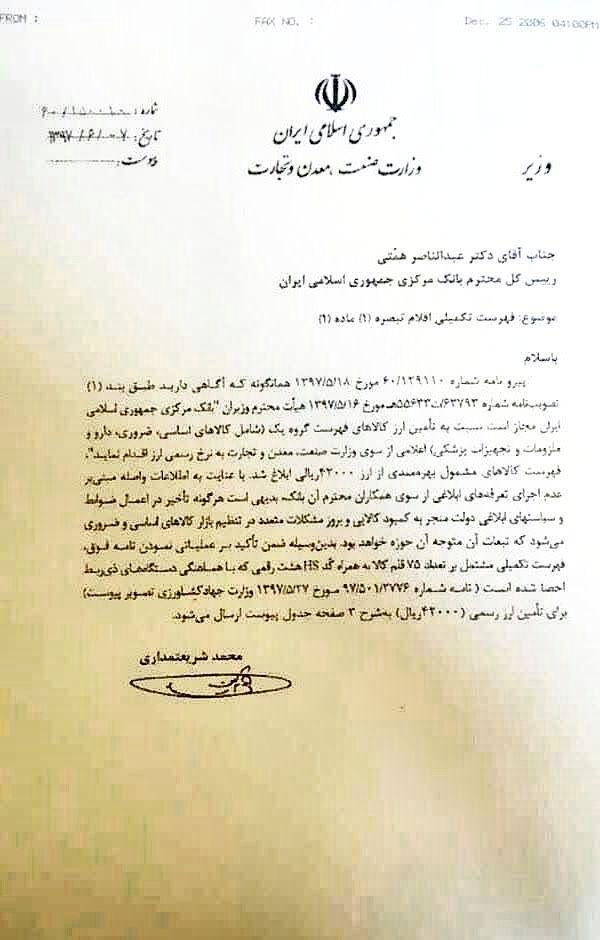 FROM :
FAX NO. :
Dec. 25 2006 04:00PM
شماره: ۶۰/۱۵۰۰۱۰
تاریخ: ۱۳۹۷/۶/۰۷
پیوست:
جمهوری اسلامی ایران
وزارت صنعت، معدن و تجارت
وزیر
جناب آقای دکتر عبدالناصر همّتی
رییس کل محترم بانک مرکزی جمهوری اسلامی ایران
موضوع: فهرست تکمیلی اقلام تبصره (۱) ماده (۱)
باسلام
پیرو نامه شماره ۶۰/۱۲۹۱۱۰ مورخ ۱۳۹۷/۵/۱۸ همانگونه که آگاهی دارید طبق بند (۱)
تصویب‌نامه شماره ۶۳۷۹۳/ت۵۵۶۳۳هـ مورخ ۱۳۹۷/۵/۱۶ هیأت محترم وزیران "بانک مرکزی جمهوری اسلامی
ایران مجاز است نسبت به تأمین ارز کالاهای فهرست گروه یک (شامل کالاهای اساسی، ضروری، دارو و
ملزومات و تجهیزات پزشکی) اعلامی از سوی وزارت صنعت، معدن و تجارت به نرخ رسمی ارز اقدام نمایند"،
فهرست کالاهای مشمول بهره‌مندی از ارز ۴۲۰۰۰ریالی ابلاغ شد. با عنایت به اطلاعات واصله مبنی‌بر
عدم اجرای تعرفه‌های ابلاغی از سوی همکاران محترم آن بانک، بدیهی است هرگونه تأخیر در اعمال ضوابط
و سیاستهای ابلاغی دولت منجر به کمبود کالایی و بروز مشکلات متعدد در تنظیم بازار کالاهای اساسی و ضروری
می‌شود که تبعات آن متوجه آن حوزه خواهد بود. بدین‌وسیله ضمن تأکید بر عملیاتی نمودن نامه فوق،
فهرست تکمیلی مشتمل بر تعداد ۷۵ قلم کالا به همراه کُد HS هشت رقمی که با هماهنگی دستگاه‌های ذی‌ربط
احصا شده است ( نامه شماره ۹۷/۵۰۱/۳۷۷۶ مورخ ۱۳۹۷/۵/۲۷ وزارت جهادکشاورزی تصویر پیوست)
برای تأمین ارز رسمی (۴۲۰۰۰ریال) به‌شرح ۳ صفحه جدول پیوست ارسال می‌شود.
محمد شریعتمداری